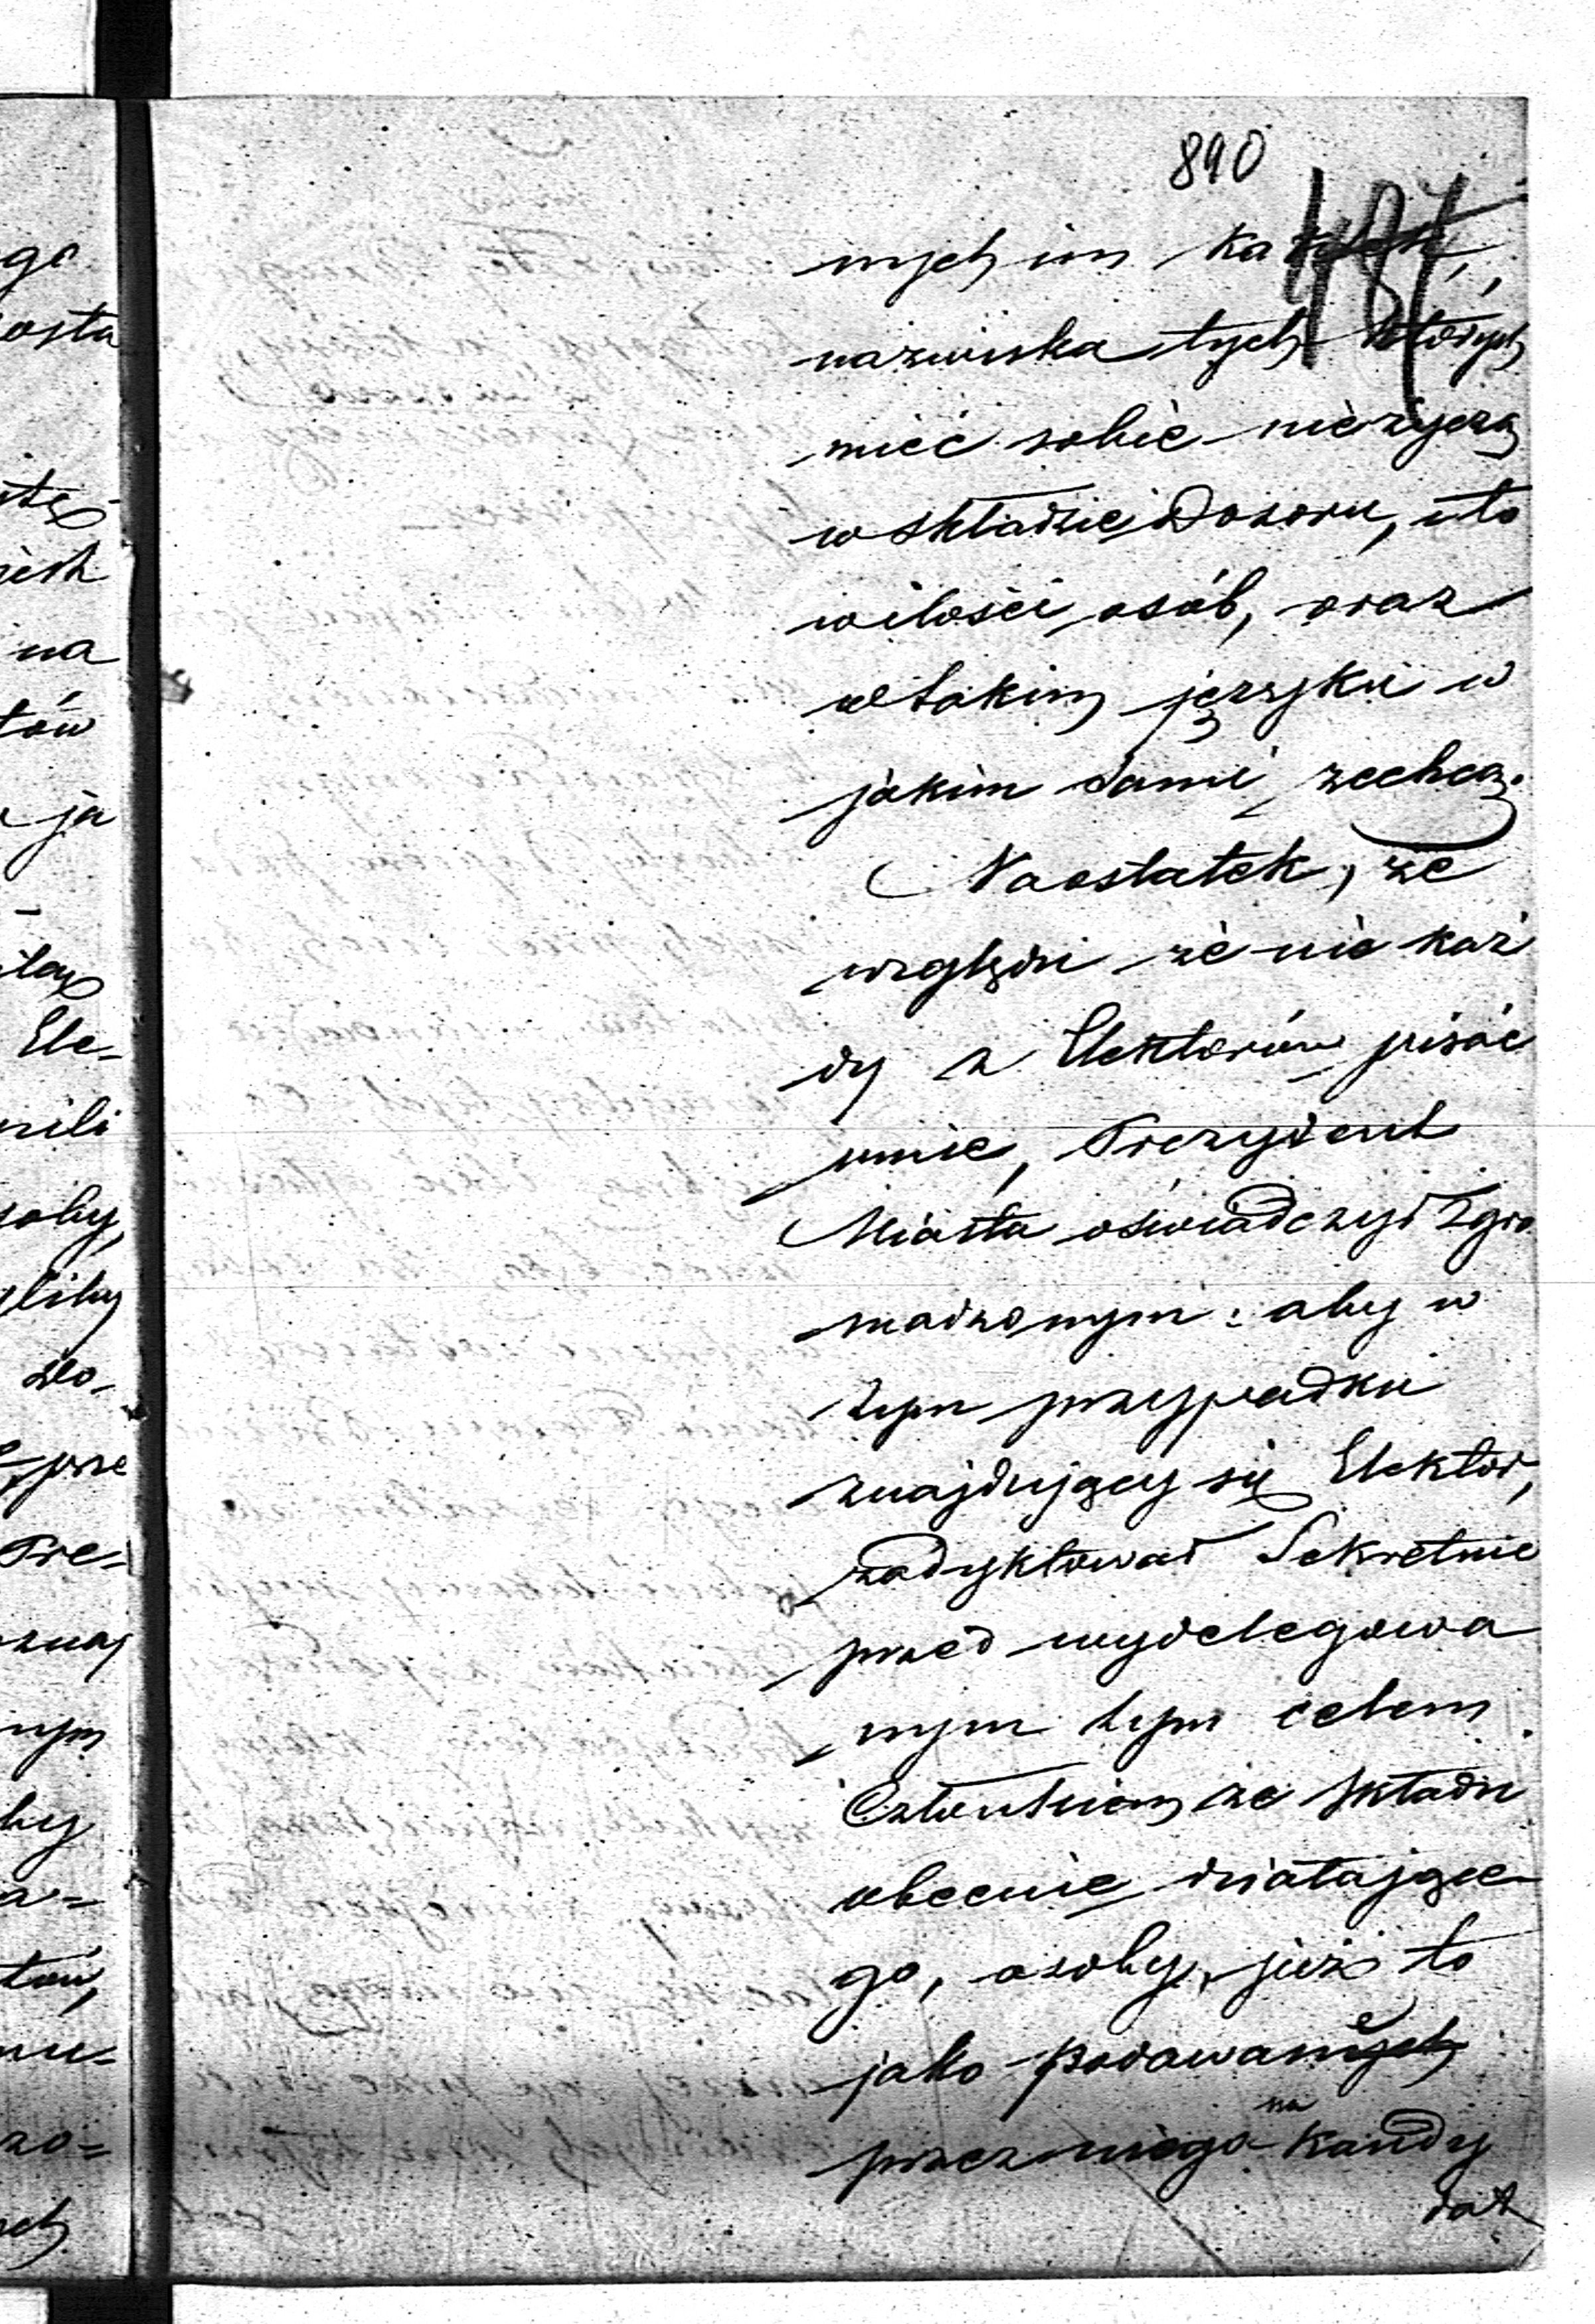 890
187
nych im kartek,
nazwiska tych których
mieć sobie nieżyczą
w składzie Dozoru, i to
w ilości osób, oraz
w takim języku w
jakim sami zechcą.
Naostatek, ze
względu że nie każ
dy z Elektorów pisać
umie, Prezydent
Miasta oświadczył Zgro
madzonym: aby w
tym przypadku
znajdujący się Elektor,
zadyktował Sekretnie
przed wydelegowa
nym tym celem
Członkiem ze składu
obecnie działające
go, osoby, już to
jako podawane
przez niego na kandy
dat
go
osta
na
tów
ja
Ele-
soby,
prze
Pre-
znaj
nym
by
a=
tów,
nu=
zo=